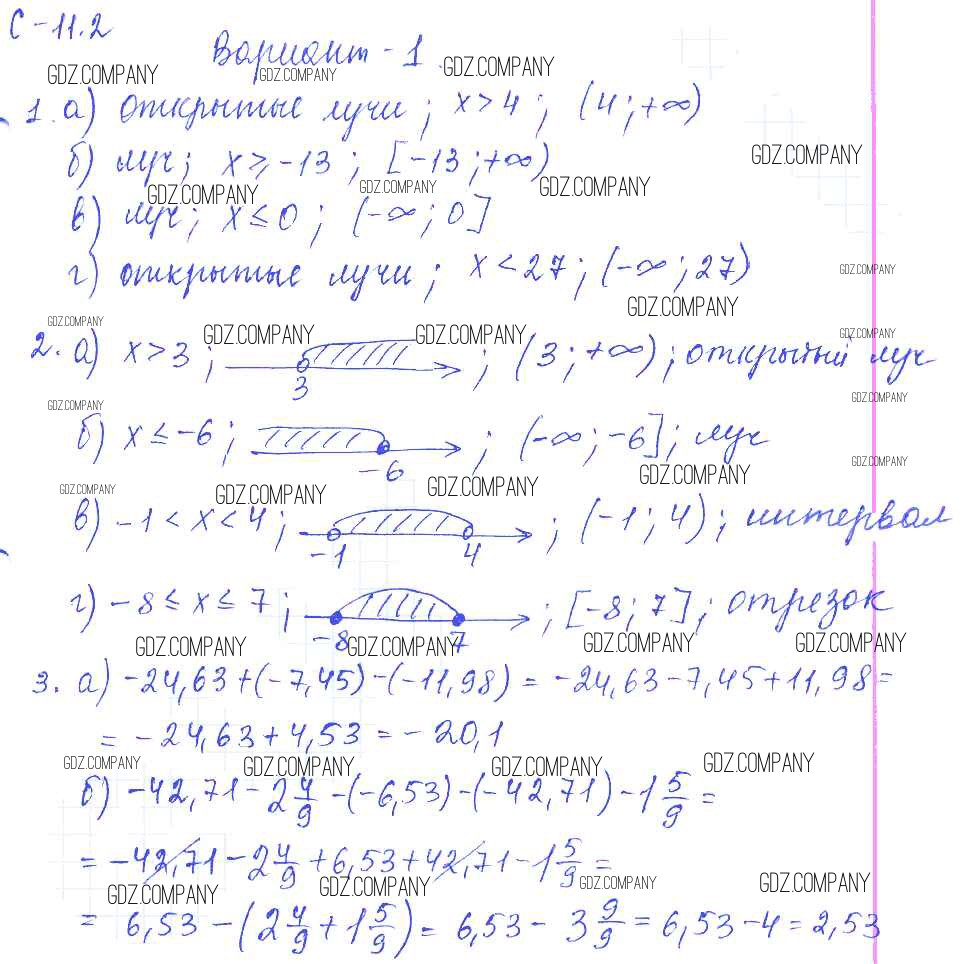 С-11.2
Вариант-1
GDZ.COMPANY GDZ.COMPANY GDZ.COMPANY
1. а) открытые лучи; x>4; (4;+∞)
б) луч; x≥-13; [-13;+∞)
GDZ.COMPANY
GDZ.COMPANY GDZ.COMPANY GDZ.COMPANY
в) луч; x≤0; (-∞;0]
г) открытые лучи; x<27; (-∞;27)
GDZ.COMPANY
GDZ.COMPANY
GDZ.COMPANY GDZ.COMPANY GDZ.COMPANY GDZ.COMPANY
2. а) x>3; 3; (3;+∞); открытый луч
GDZ.COMPANY GDZ.COMPANY
б) x≤-6; -6; (-∞;-6]; луч
GDZ.COMPANY GDZ.COMPANY
GDZ.COMPANY GDZ.COMPANY GDZ.COMPANY
в) -1<x<4; -1 4; (-1;4); интервал
г) -8≤x≤7; -8 7; [-8;7]; отрезок
GDZ.COMPANY GDZ.COMPANY GDZ.COMPANY GDZ.COMPANY
3. а) -24,63+(-7,45)-(-11,98)=-24,63-7,45+11,98=
=-24,63+4,53=-20,1
GDZ.COMPANY GDZ.COMPANY GDZ.COMPANY GDZ.COMPANY
б) -42,71-2 4/9-(-6,53)-(-42,71)-1 5/9=
=-42,71-2 4/9+6,53+42,71-1 5/9=
GDZ.COMPANY GDZ.COMPANY GDZ.COMPANY GDZ.COMPANY
=6,53-(2 4/9+1 5/9)=6,53-3 9/9=6,53-4=2,53